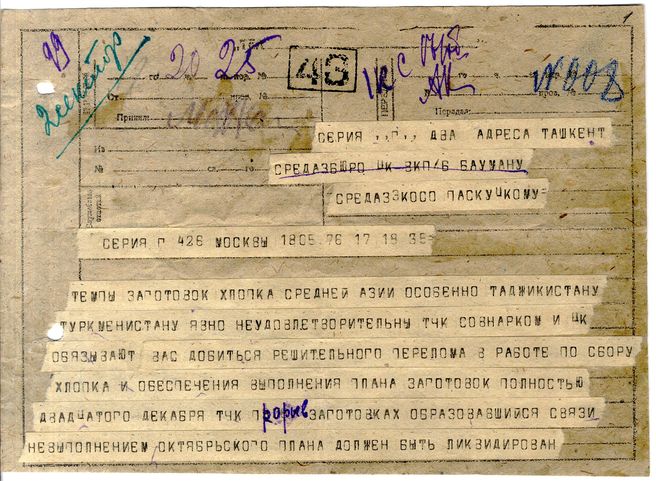 1
99
20 25
43
№ 808
2 сектор
го
пор. №
От
пров. №
Принял:
Передал:
Из
№
сл.
го
СЕРИЯ ,,Г,, ДВА АДРЕСА ТАШКЕНТ
СРЕДАЗБЮРО ЦК ВКП/Б БАУМАНУ
СРЕДАЗЭКОСО ПАСКУЦКОМУ=
СЕРИЯ Г 426 МОСКВЫ 1805 76 17 18 35=
ТЕМПЫ ЗАГОТОВОК ХЛОПКА СРЕДНЕЙ АЗИИ ОСОБЕННО ТАДЖИКИСТАНУ
ТУРКМЕНИСТАНУ ЯВНО НЕУДОВЛЕТВОРИТЕЛЬНЫ ТЧК СОВНАРКОМ И ЦК
ОБЯЗЫВАЮТ ВАС ДОБИТЬСЯ РЕШИТЕЛЬНОГО ПЕРЕЛОМА В РАБОТЕ ПО СБОРУ
ХЛОПКА И ОБЕСПЕЧЕНИЯ ВЫПОЛНЕНИЯ ПЛАНА ЗАГОТОВОК ПОЛНОСТЬЮ
ДВАДЦАТОГО ДЕКАБРЯ ТЧК Прорыв ЗАГОТОВКАХ ОБРАЗОВАВШИЙСЯ СВЯЗИ
НЕВЫПОЛНЕНИЕМ ОКТЯБРЬСКОГО ПЛАНА ДОЛЖЕН БЫТЬ ЛИКВИДИРОВАН